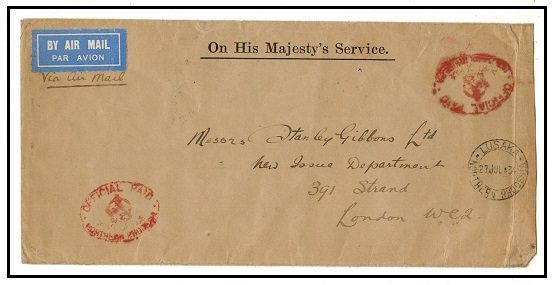 BY AIR MAIL
PAR AVION
Via Air Mail
On His Majesty's Service.
OFFICIAL PAID
Messrs Stanley Gibbons Ltd
New Issue Department
391 Strand
London WC2
LUSAKA
NORTHERN RHODESIA
OFFICIAL PAID
NORTHERN RHODESIA